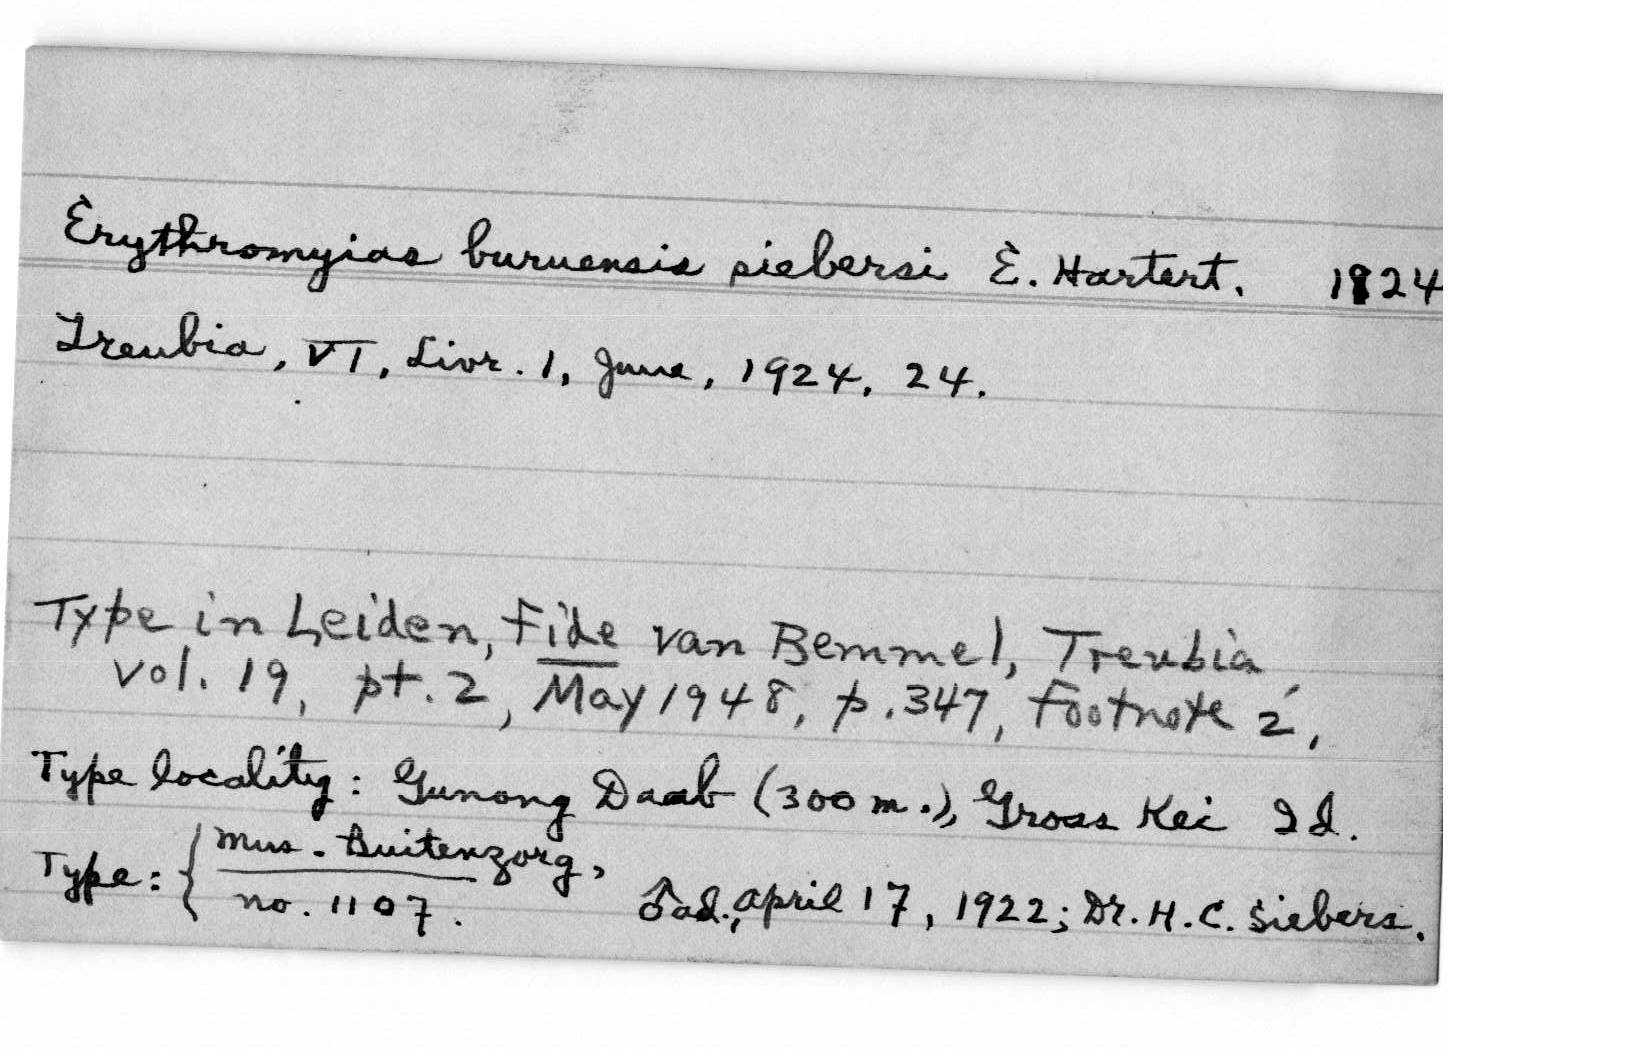 Erythromyias buruensis siebersi E. Hartert. 1924
Treubia, VI, Livr. 1, June, 1924, 24.
Type in Leiden, fide van Bemmel, Treubia,
vol. 19, pt. 2, May 1948, p. 347, footnote 2,
Type locality: Gunong Daab (300 m.), Gross Kei Id.
Type: { Mus. Buitenzorg,
no. 1107. ♂ ad., April 17, 1922; Dr. H. C. Siebers.